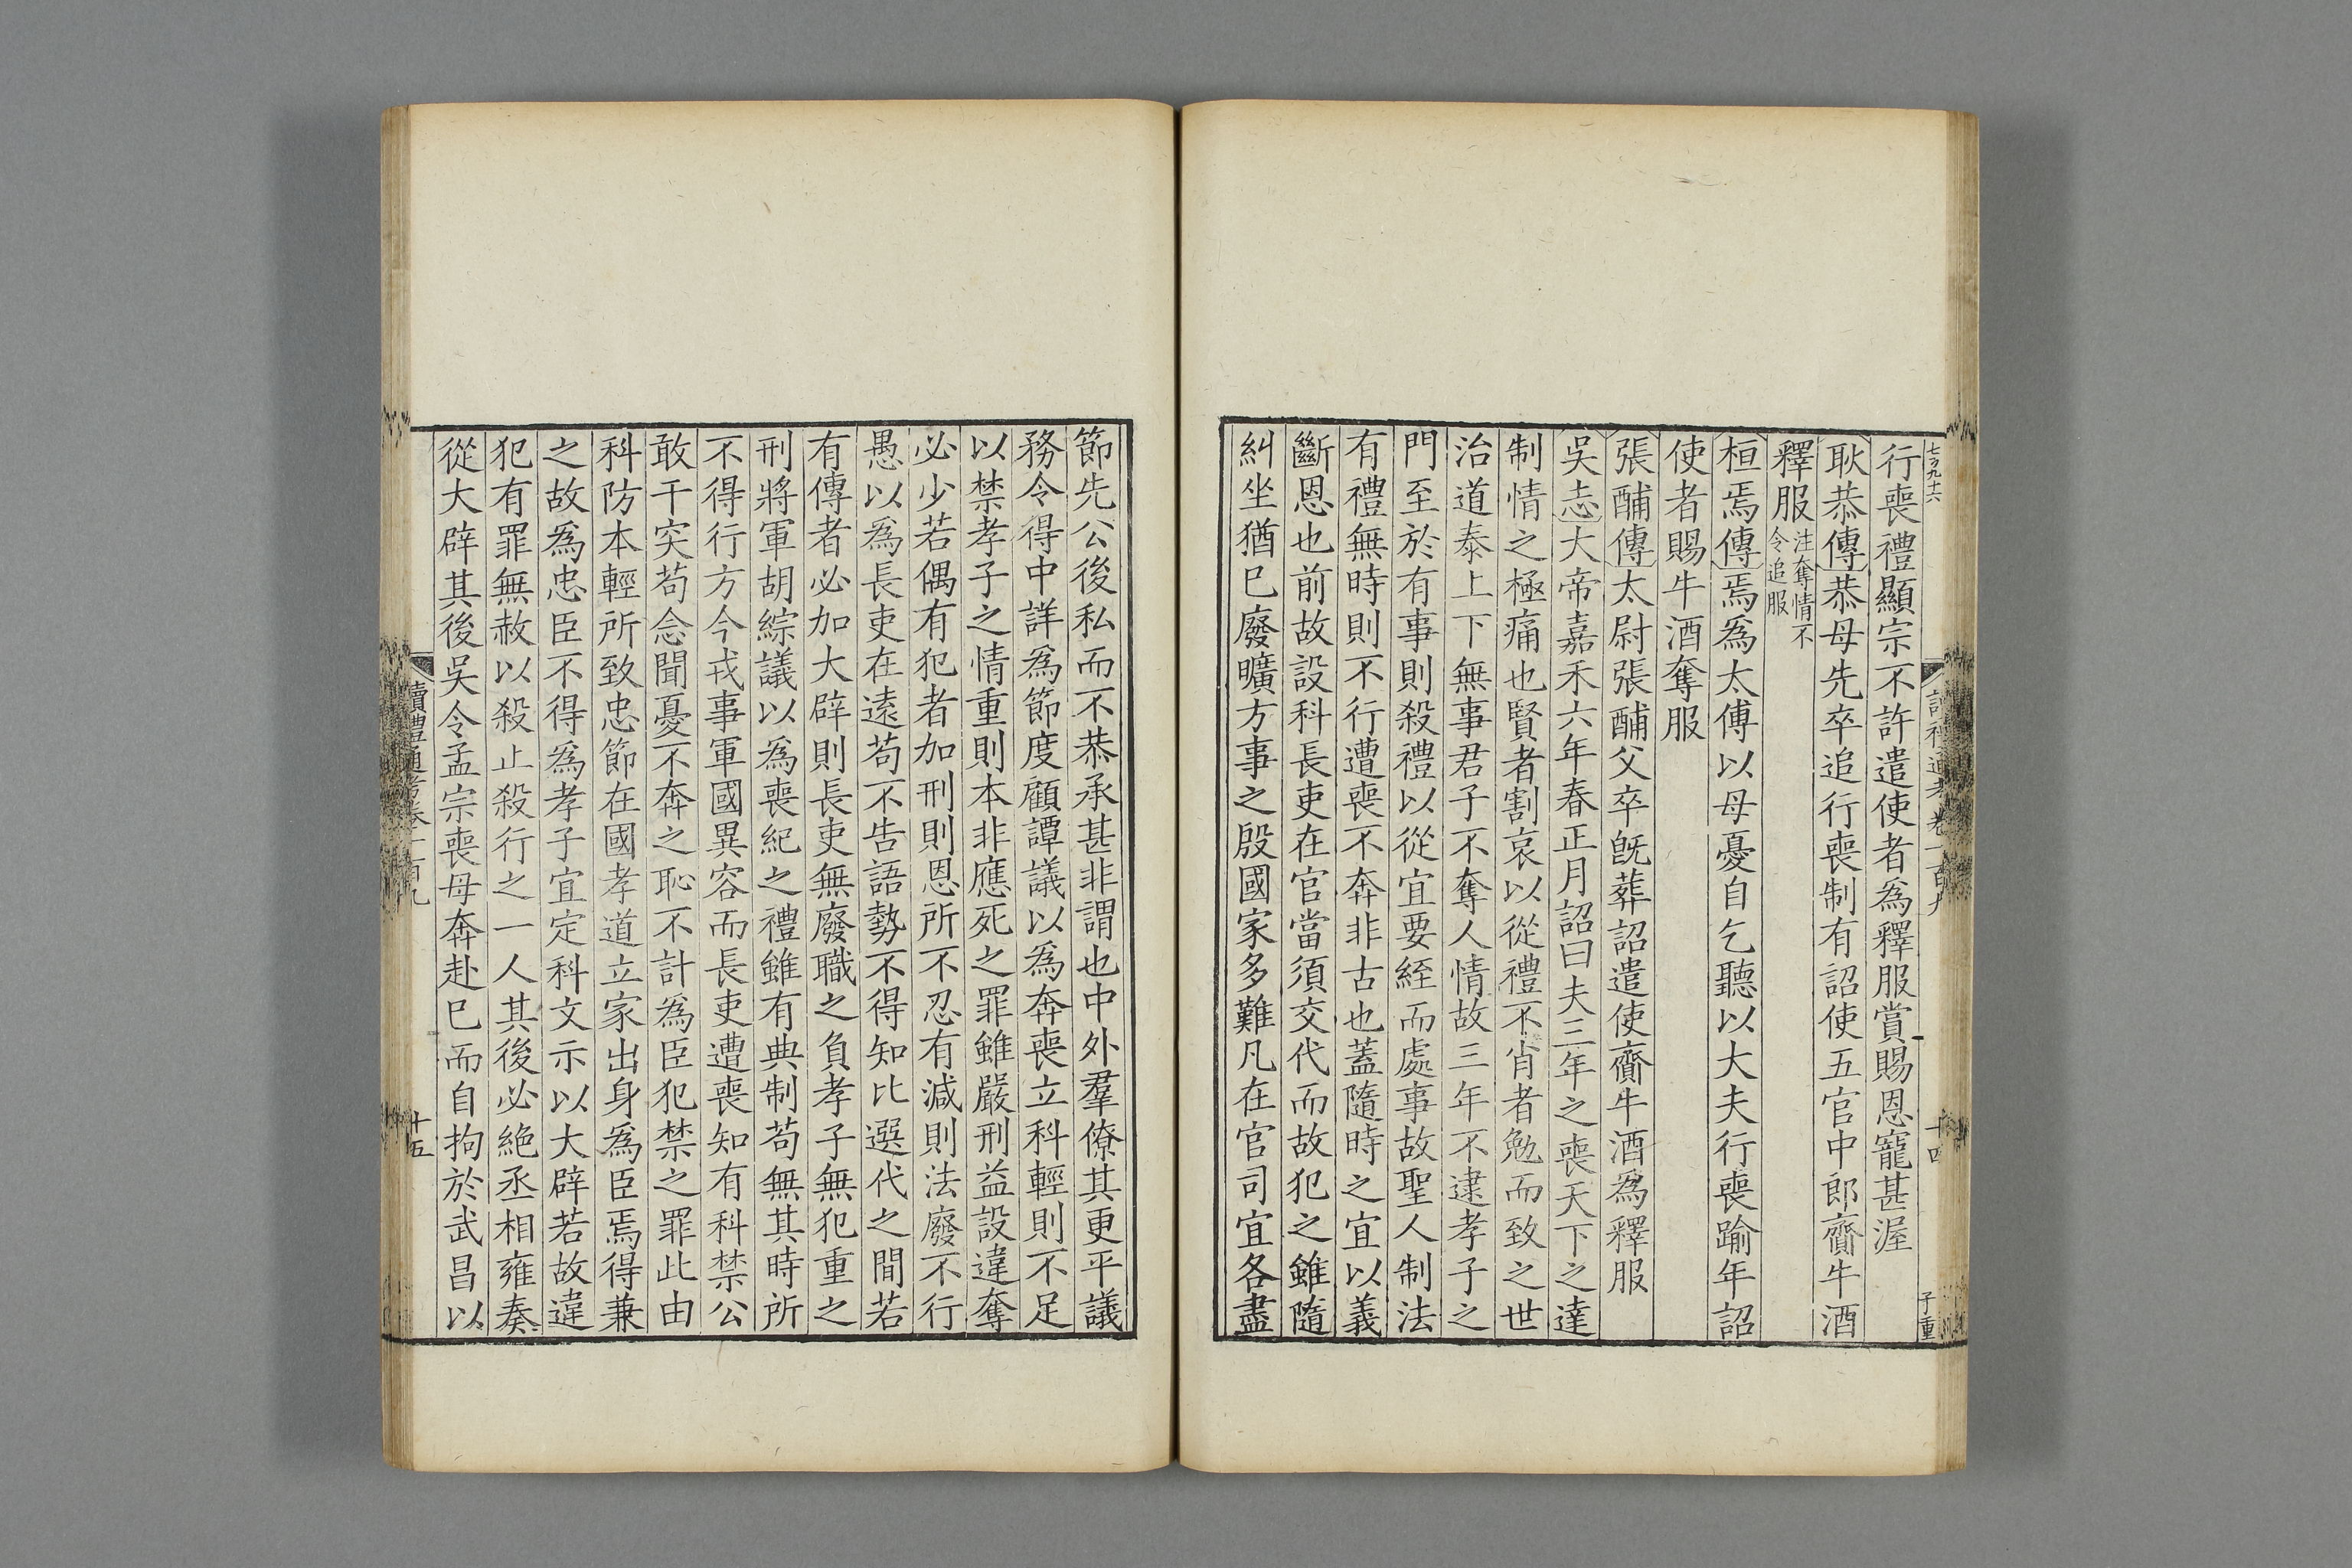 行喪禮顯宗不許遣使者為釋服賞賜恩寵甚渥
耿恭傳恭母先卒追行喪制有詔使五官中郎齎牛酒
釋服注奪情不令追服
桓焉傳焉為太傅以母憂自乞聽以大夫行喪踰年詔
使者賜牛酒奪服
張酺傳太尉張酺父卒旣葬詔遣使齎牛酒為釋服
吳志大帝嘉禾六年春正月詔曰夫三年之喪天下之達
制情之極痛也賢者割哀以從禮不肖者勉而致之世
治道泰上下無事君子不奪人情故三年不逮孝子之
門至於有事則殺禮以從宜要絰而處事故聖人制法
有禮無時則不行遭喪不奔非古也蓋隨時之宜以義
斷恩也前故設科長吏在官當須交代而故犯之雖隨
糾坐猶已廢曠方事之殷國家多難凡在官司宜各盡
節先公後私而不恭承甚非謂也中外羣僚其更平議
務令得中詳為節度顧譚議以為奔喪立科輕則不足
以禁孝子之情重則本非應死之罪雖嚴刑益設違奪
必少若偶有犯者加刑則恩所不忍有減則法廢不行
愚以為長吏在遠苟不告語勢不得知比選代之間若
有傳者必加大辟則長吏無廢職之負孝子無犯重之
刑將軍胡綜議以為喪紀之禮雖有典制苟無其時所
不得行方今戎事軍國異容而長吏遭喪知有科禁公
敢干突苟念聞憂不奔之恥不計為臣犯禁之罪此由
科防本輕所致忠節在國孝道立家出身為臣焉得兼
之故為忠臣不得為孝子宜定科文示以大辟若故違
犯有罪無赦以殺止殺行之一人其後必絕丞相雍奏
從大辟其後吳令孟宗喪母奔赴已而自拘於武昌以
讀禮通考卷一百九
十五